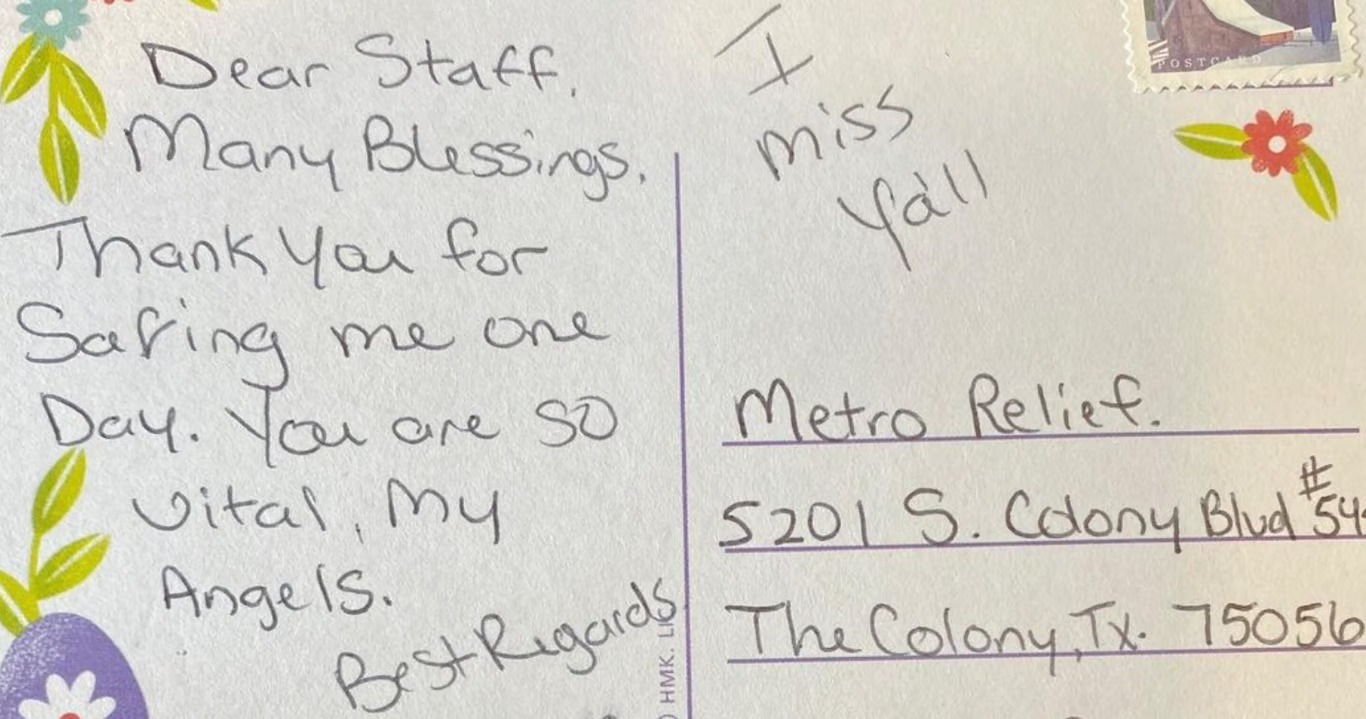 Dear Staff,
Many Blessings.
Thank you for
Safing me one
Day. You are so
vital, My
Angels.
Best Regards
I
miss
Ya'll
POSTCARD
Metro Relief.
5201 S. Colony Blvd #54
The Colony, Tx. 75056
HMK. LI